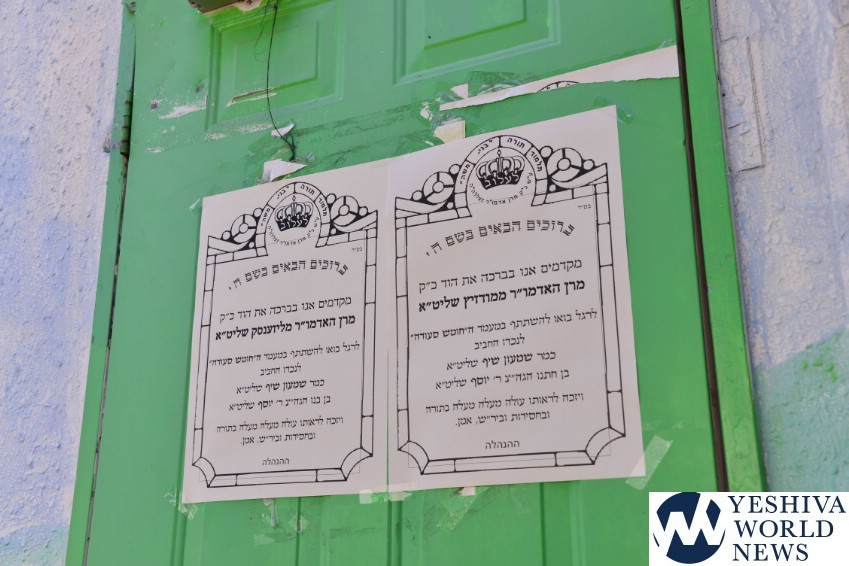 תלמוד תורה "בני משה"
לעלוב
בס"ד
ברוכים הבאים בשם ה'
מקדמים אנו בברכה את הוד כ"ק
מרן האדמו"ר מליזענסק שליט"א
לרגל בואו להשתתף במעמד ה'חומש סעודה'
לנכדו החביב
כמר שמעון שיף שליט"א
בן בנו הגה"צ ר' יוסף שליט"א
ויזכה לראותו עולה מעלה מעלה בתורה
ובחסידות וביר"ש, אמן.
ההנהלה
תלמוד תורה "בני משה"
לעלוב
בס"ד
ברוכים הבאים בשם ה'
מקדמים אנו בברכה את הוד כ"ק
מרן האדמו"ר ממודזיץ שליט"א
לרגל בואו להשתתף במעמד ה'חומש סעודה'
לנכדו החביב
כמר שמעון שיף שליט"א
בן חתנו הגה"צ ר' יוסף שליט"א
ויזכה לראותו עולה מעלה מעלה בתורה
ובחסידות וביר"ש, אמן.
ההנהלה
YESHIVA
WORLD
NEWS